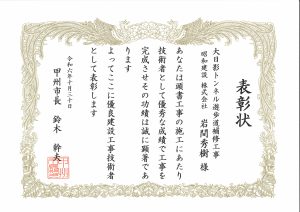 表彰状
大日影トンネル遊歩道補修工事
昭和建設 株式会社
岩間秀樹 様
あなたは頭書工事の施工にあたり
技術者として優秀な成績で工事を
完成させその功績は誠に顕著であ
ります
よってここに優良建設工事技術者
として表彰します
令和六年十月二十日
甲州市長 鈴木 幹夫